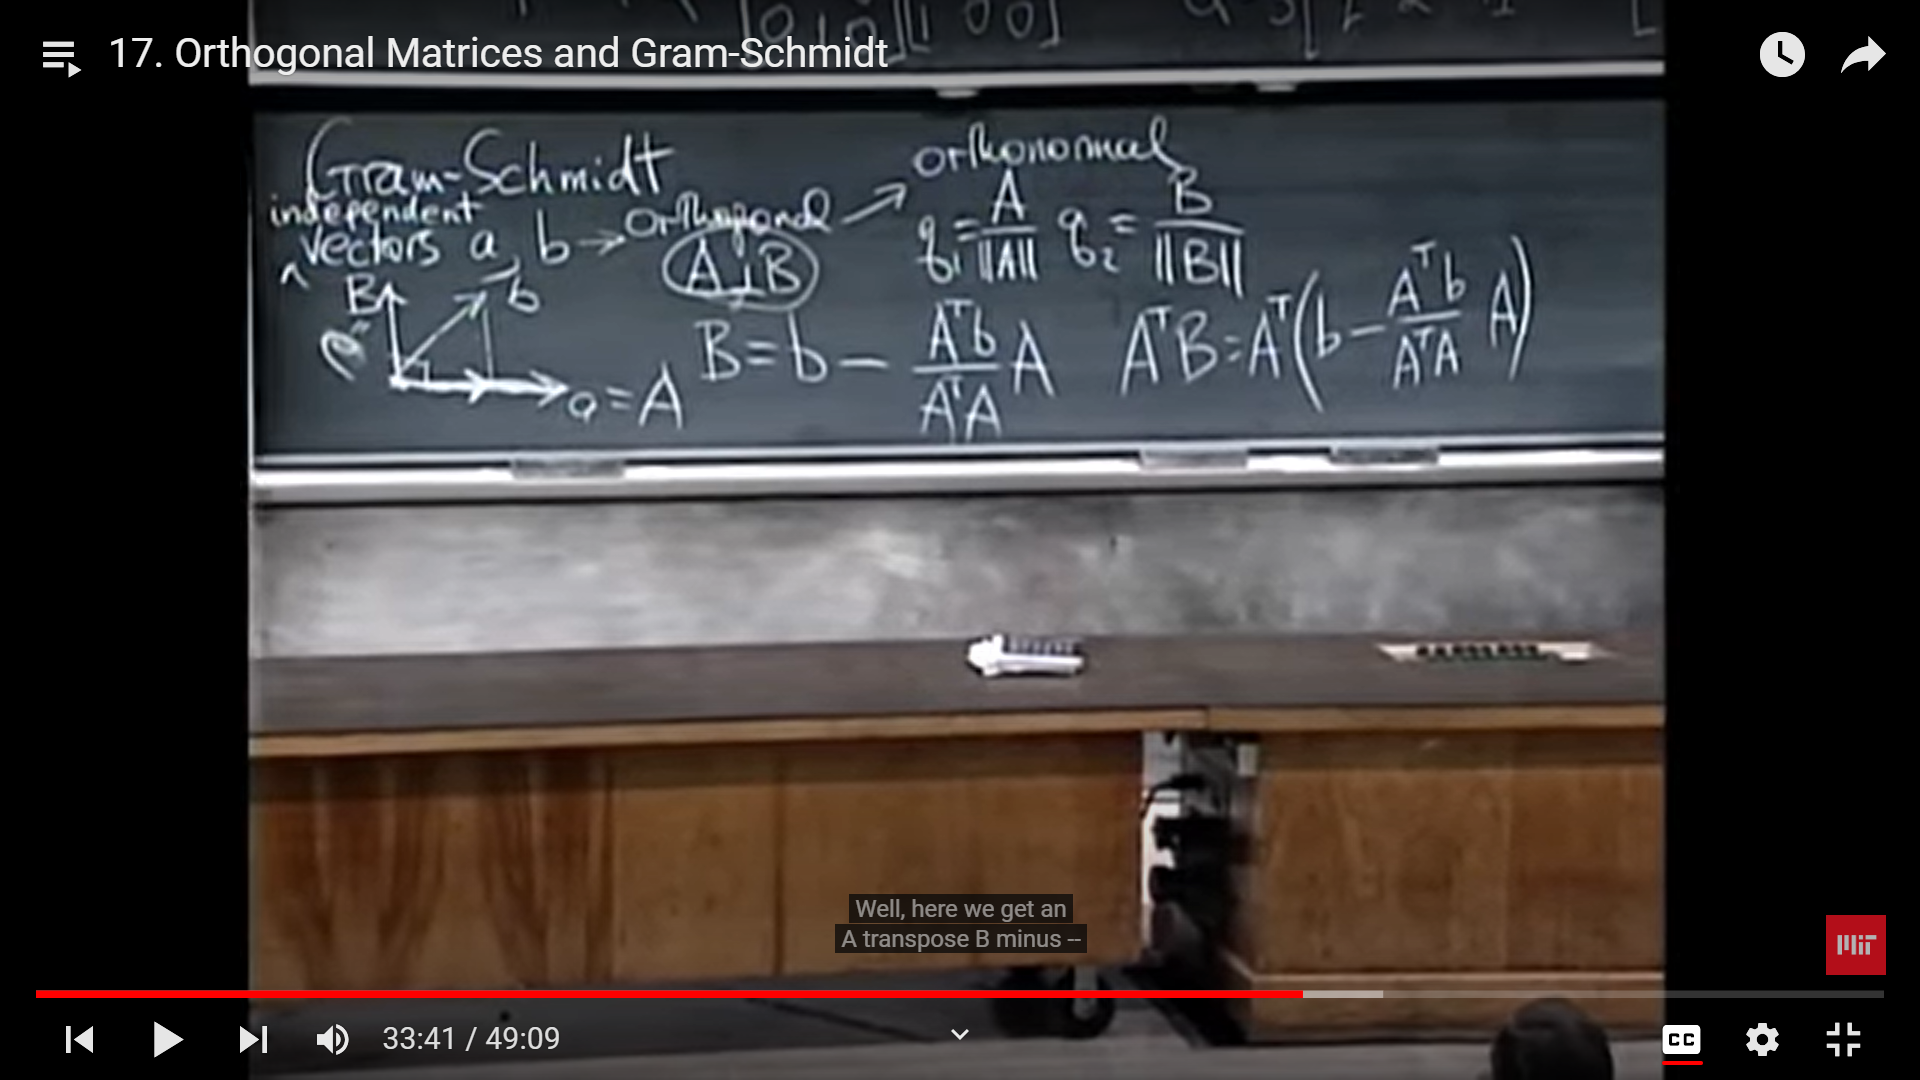 17. Orthogonal Matrices and Gram-Schmidt
Gram-Schmidt
independent
vectors a, b → orthogonal → orthonormal
A ⊥ B
q₁ = A/||A|| q₂ = B/||B||
B
b
a = A
B = b − (Aᵀb/AᵀA) A
AᵀB = Aᵀ(b − (Aᵀb/AᵀA) A)
Well, here we get an
A transpose B minus --
MIT
33:41 / 49:09
CC